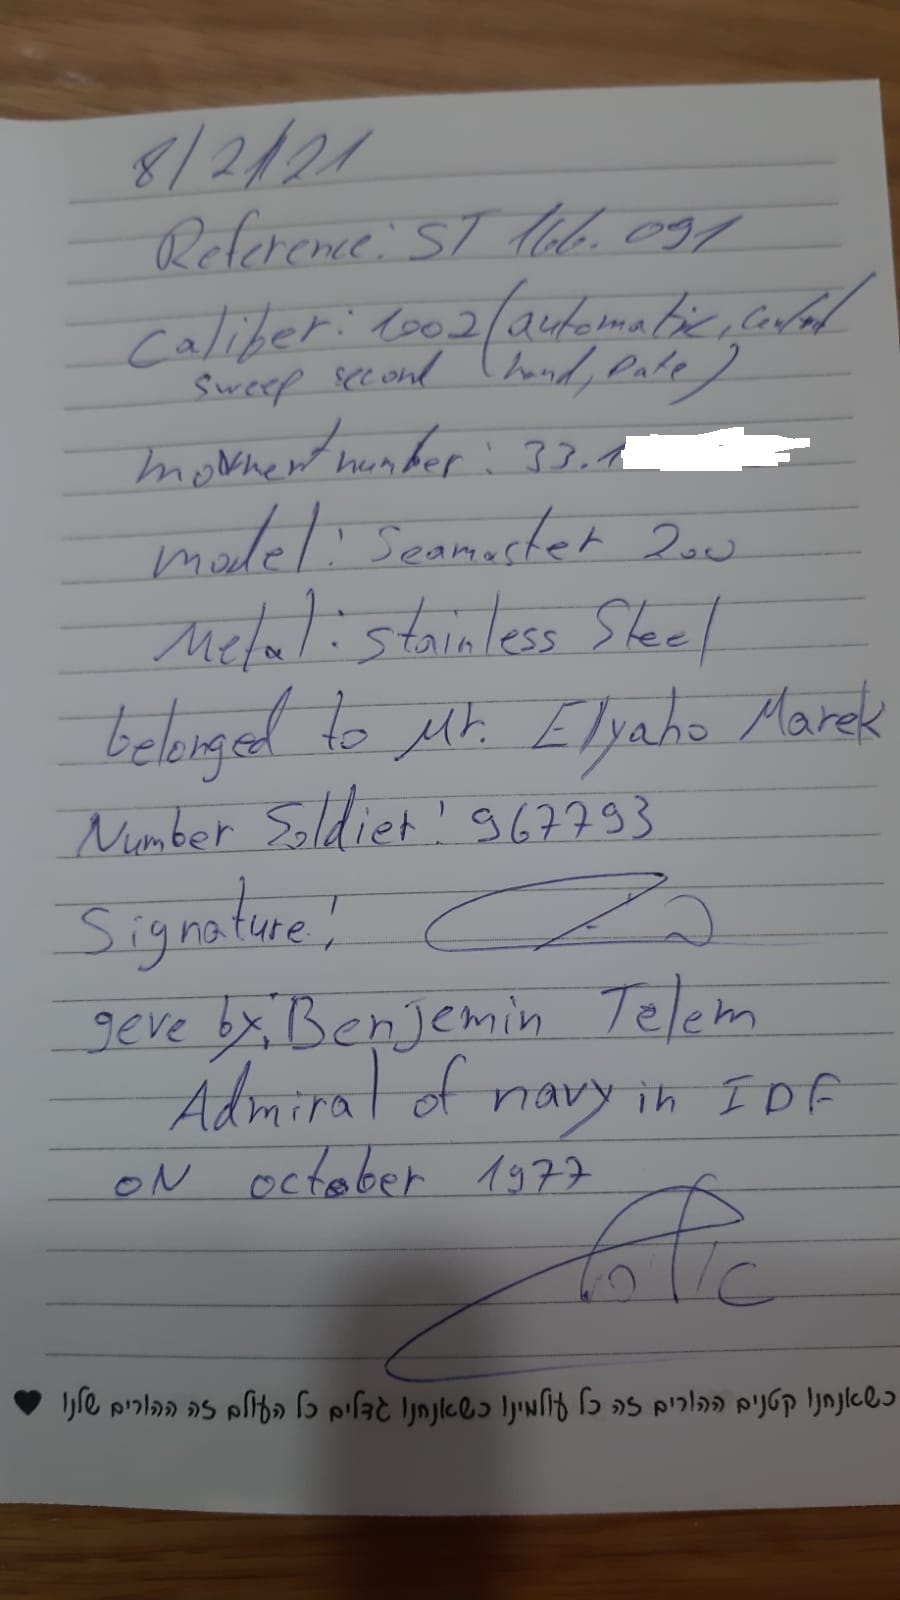 8/2/21
Reference: ST 166.091
Caliber: 1002 (automatic, central
sweep second hand, Date)
movment number: 33.1
model: Seamaster 200
Metal: Stainless Steel
belonged to Mr. Elyaho Marek
Number Soldier: 967793
Signature:
geve by: Benjemin Telem
Admiral of navy in IDF
ON october 1977
כשאנחנו קטנים ההורים זה כל עולמינו כשאנחנו גדלים כל העולם זה ההורים שלנו ♥